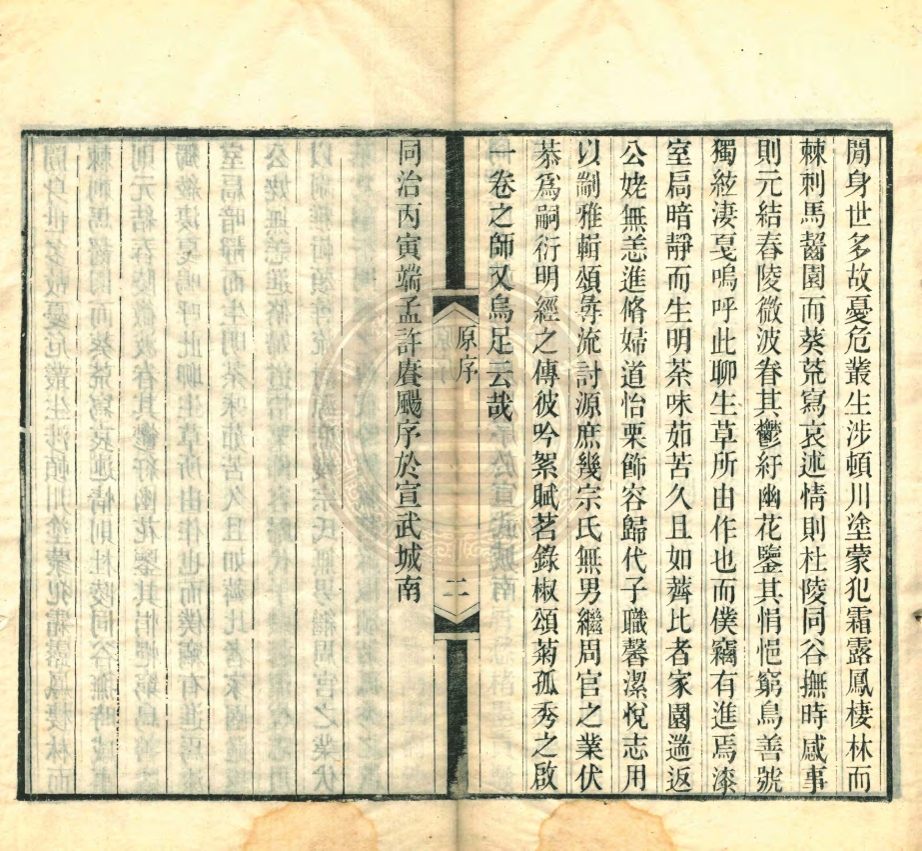 閒身世多故憂危叢生涉頓川塗蒙犯霜露鳳棲林而
棘刺馬齧園而葵荒寫哀述情則杜陵同谷撫時感事
則元結舂陵微波眷其鬱紆幽花鑒其悁悒窮鳥善號
獨絃淒戛嗚呼此聊生草所由作也而僕竊有進焉漆
室扃暗靜而生明茶味茹苦久且如薺比者家園遄返
公姥無恙進脩婦道怡栗飾容歸代子職馨潔悅志用
以翦雅輯頌尋流討源庶幾宗氏無男繼周官之業伏
恭爲嗣衍明經之傳彼吟絮賦茗錄椒頌菊孤秀之啟
一卷之師又烏足云哉
同治丙寅端孟許賡颺序於宣武城南
原序
二